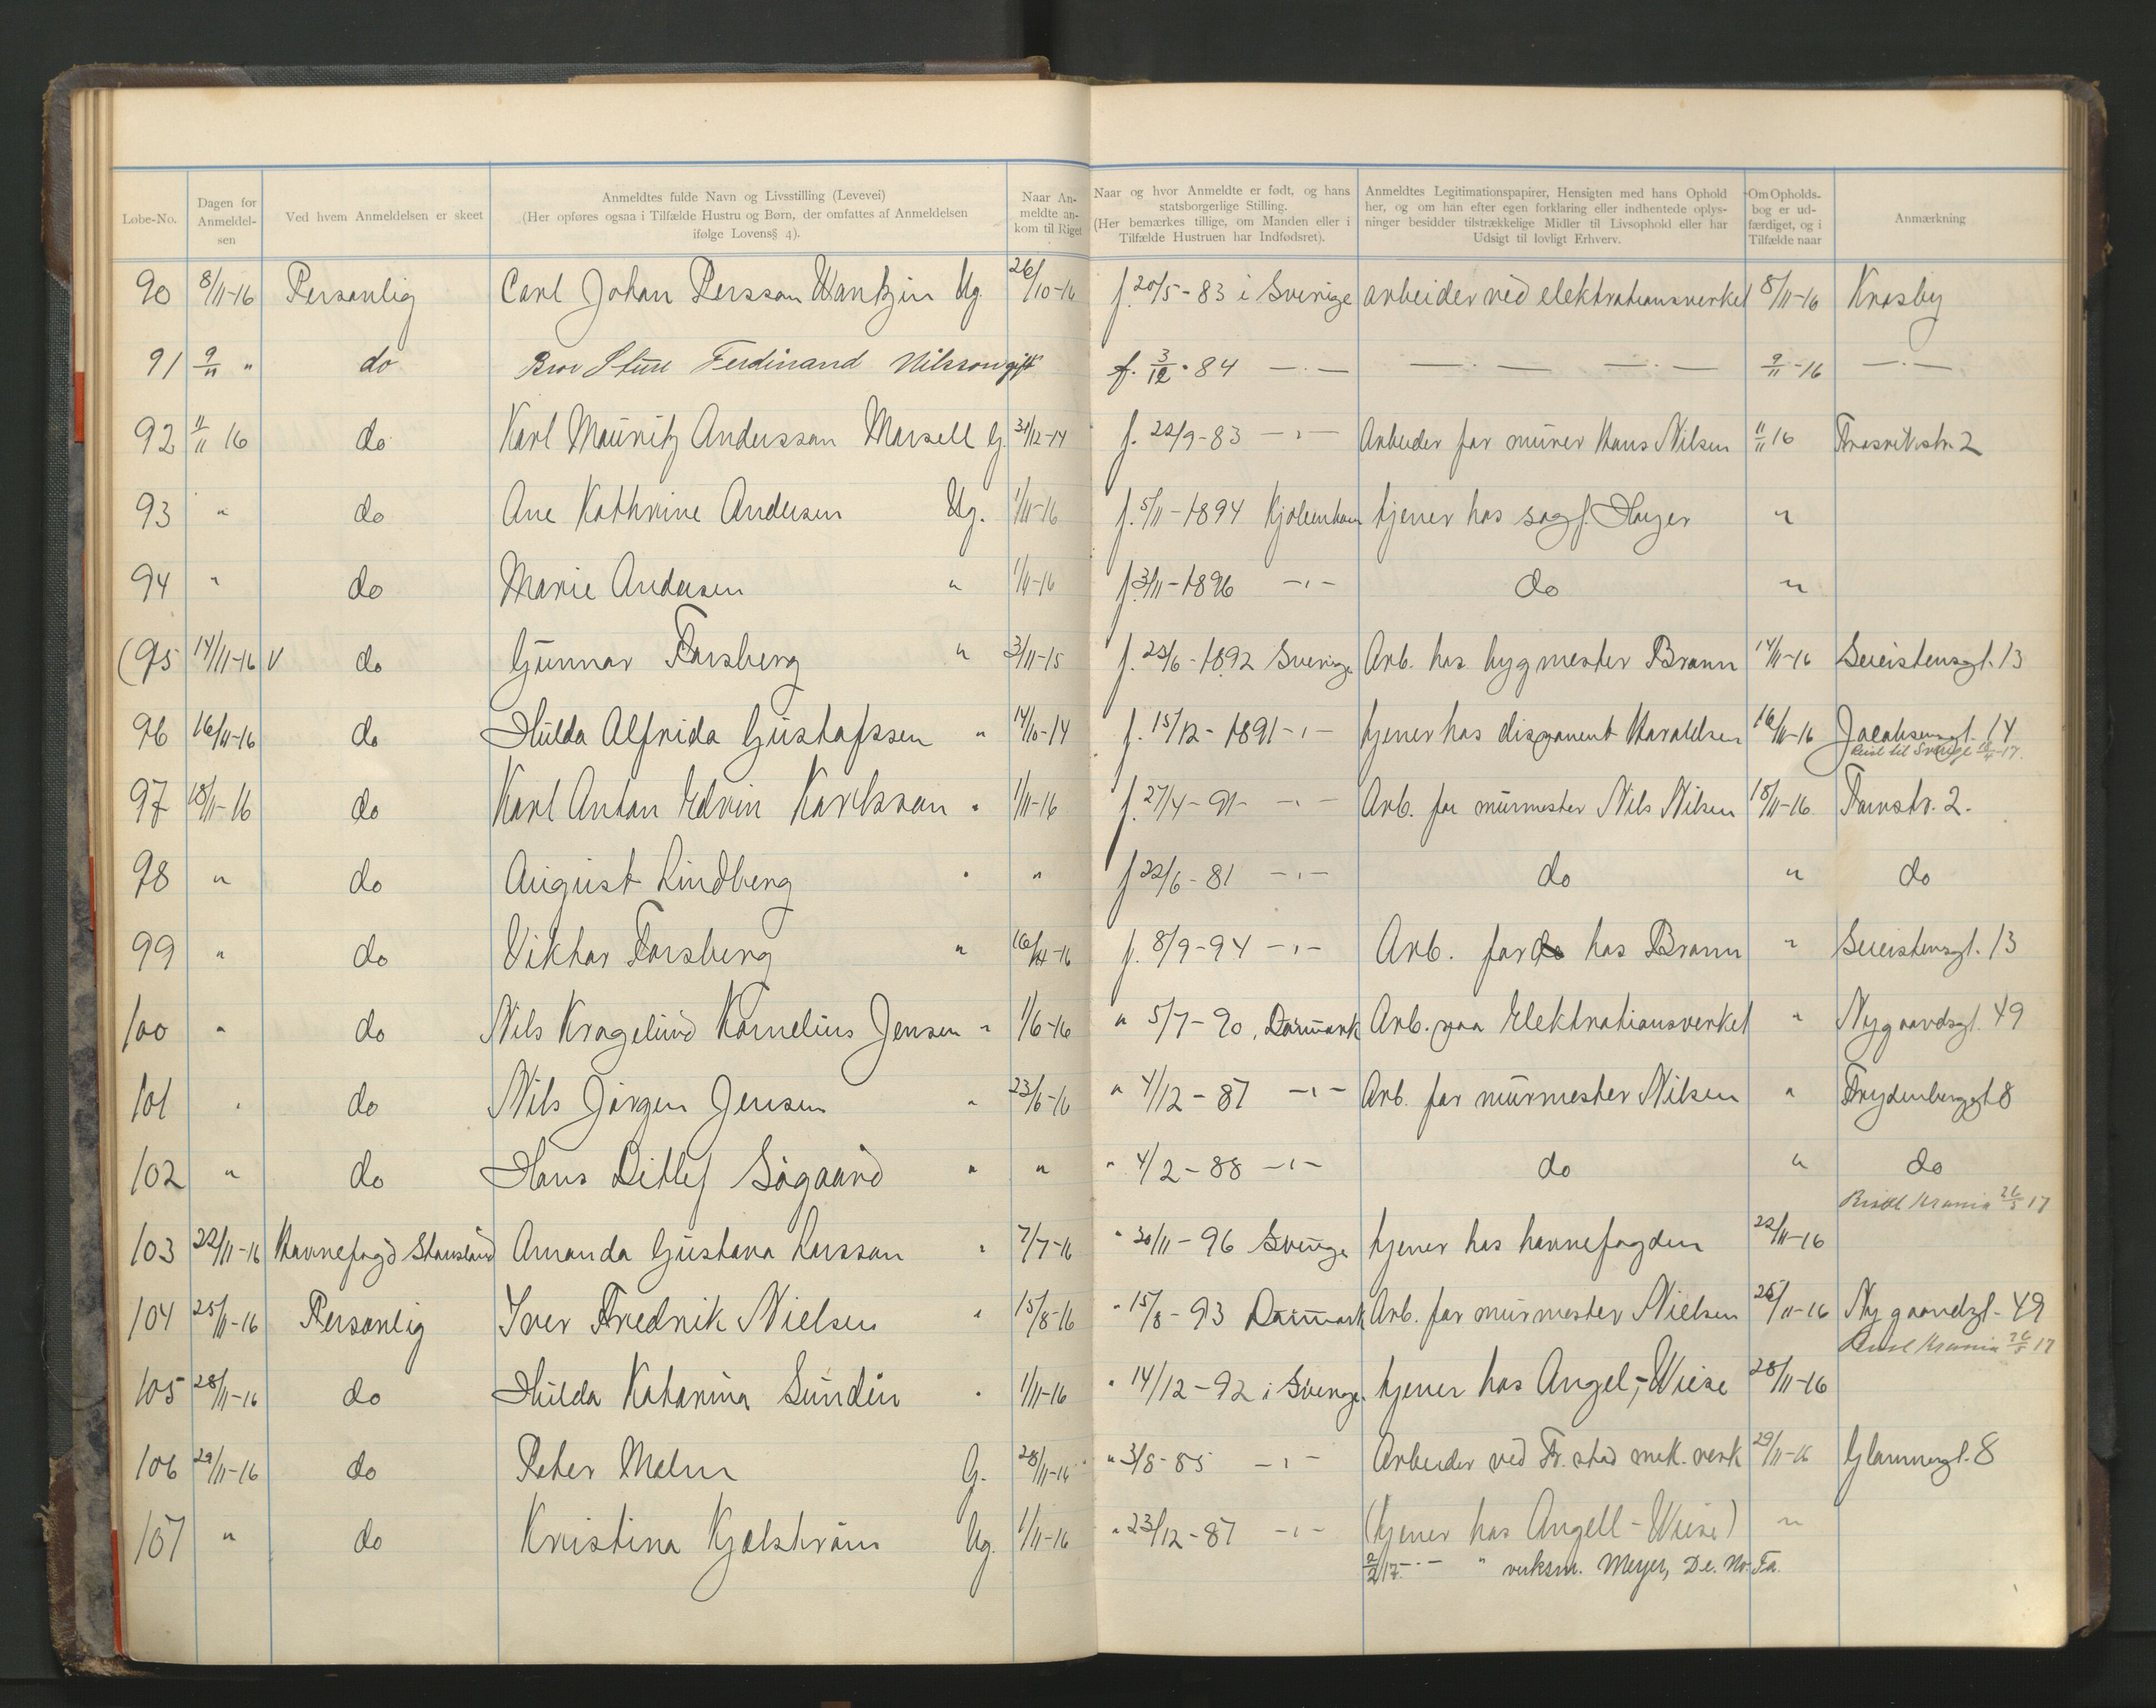 Løbe-No.
Dagen for Anmeldel-sen
Ved hvem Anmeldelsen er skeet
Anmeldtes fulde Navn og Livsstilling (Levevei)
(Her opføres ogsaa i Tilfælde Hustru og Børn, der omfattes af Anmeldelsen
ifølge Lovens § 4).
Naar An-
meldte an-
kom til Riget
Naar og hvor Anmeldte er født, og hans
statsborgerlige Stilling.
(Her bemærkes tillige, om Manden eller i
Tilfælde Hustruen har Indfødsret).
Anmeldtes Legitimationspapirer, Hensigten med hans Ophold
her, og om han efter egen forklaring eller indhentede oplys-
ninger besidder tilstrækkelige Midler til Livsophold eller har
Udsigt til lovligt Erhverv.
Om Opholds-
bog er ud-
færdiget, og i
Tilfælde naar
Anmærkning
90 8/11-16 Personlig Carl Johan Persson Ug. 26/10-16 f. 20/5-83 i Sverige arbeider ved elektrationsverket 8/11-16 Krosby
91 9/11 " do Bror Sture Ferdinand Nilsson gift f. 3/12-84 -.- -.- -.- 9/11-16 -.-
92 11/11 16 do Karl Mauritz Andersson Morsell G. 31/12-14 f. 22/9-83 -"- Arbeider for murer Hans Nilsen 11/11 16
93 " do Ane Kathrine Andersen Ug. 1/11-16 f. 5/11-1894 Kjøbenhavn tjener hos sagf. Høyer "
94 " do Marie Andersen " 1/11-16 f. 3/11-1896 -"- do "
(95 14/11-16 V do Gunnar Forsberg " 3/11-15 f. 23/6-1892 Sverige Arb. hos bygmester Brann 14/11-16 Seierstensgt. 13
96 16/11-16 do Hulda Alfrida Gustafssen " 14/10-14 f. 15/12-1891 -"- tjener hos disponent Haraldsen 16/11-16 Jacobsensgt. 14
Reist til Sverige
97 18/11-16 do Karl Anton Edvin Karlsson " 1/11-16 f. 27/4-91 -"- Arb. for murmester Nils Nilsen 18/11-16 Farmstr. 2.
98 " do August Lindberg " " f 22/6-81 -"- do " do
99 " do Viktor Forsberg " 16/11-16 f. 8/9-94 -"- Arb. for do hos Brann " Seierstensgt. 13
100 " do Nils Kragelund Kornelius Jensen " 1/6-16 " 5/7-90, Danmark Arb. paa Elektrationsverket " Nygaardsgt. 49
101 " do Nils Jørgen Jensen " 23/6-16 " 4/12-87 -"- Arb. for murmester Nilsen " Frydenberggt 8
102 " do Hans Ditlef Søgaard " " " 4/2-88 -"- do " do
Reist Krania 26/5 17
103 22/11-16 Havnefogd Stousland Amanda Gustava Larsson " 7/7-16 " 30/11-96 Sverige tjener hos havnefogden 22/11-16
104 25/11-16 Personlig Iver Fredrik Nielsen " 15/8-16 " 15/8-93 Danmark Arb. for murmester Nielsen 25/11-16 Nygaardsgt. 49
Reist Krania 26/5 17
105 28/11-16 do Hulda Katarina Sundén " 1/11-16 " 14/12-92 i Sverige. tjener hos Angel,-Wiese 28/11-16
106 29/11-16 do Peter Malm G. 28/11-16 " 3/8-85 -"- Arbeider ved Fr.stad mek. verk 29/11-16 Glommengt. 8
107 " do Kristina Kjølstrøm Ug. 1/11-16 " 23/12-87 -"- (tjener hos Angell-Wiese) "
2/2 17. -.- " verksm. Meyer, De. No. Fa.